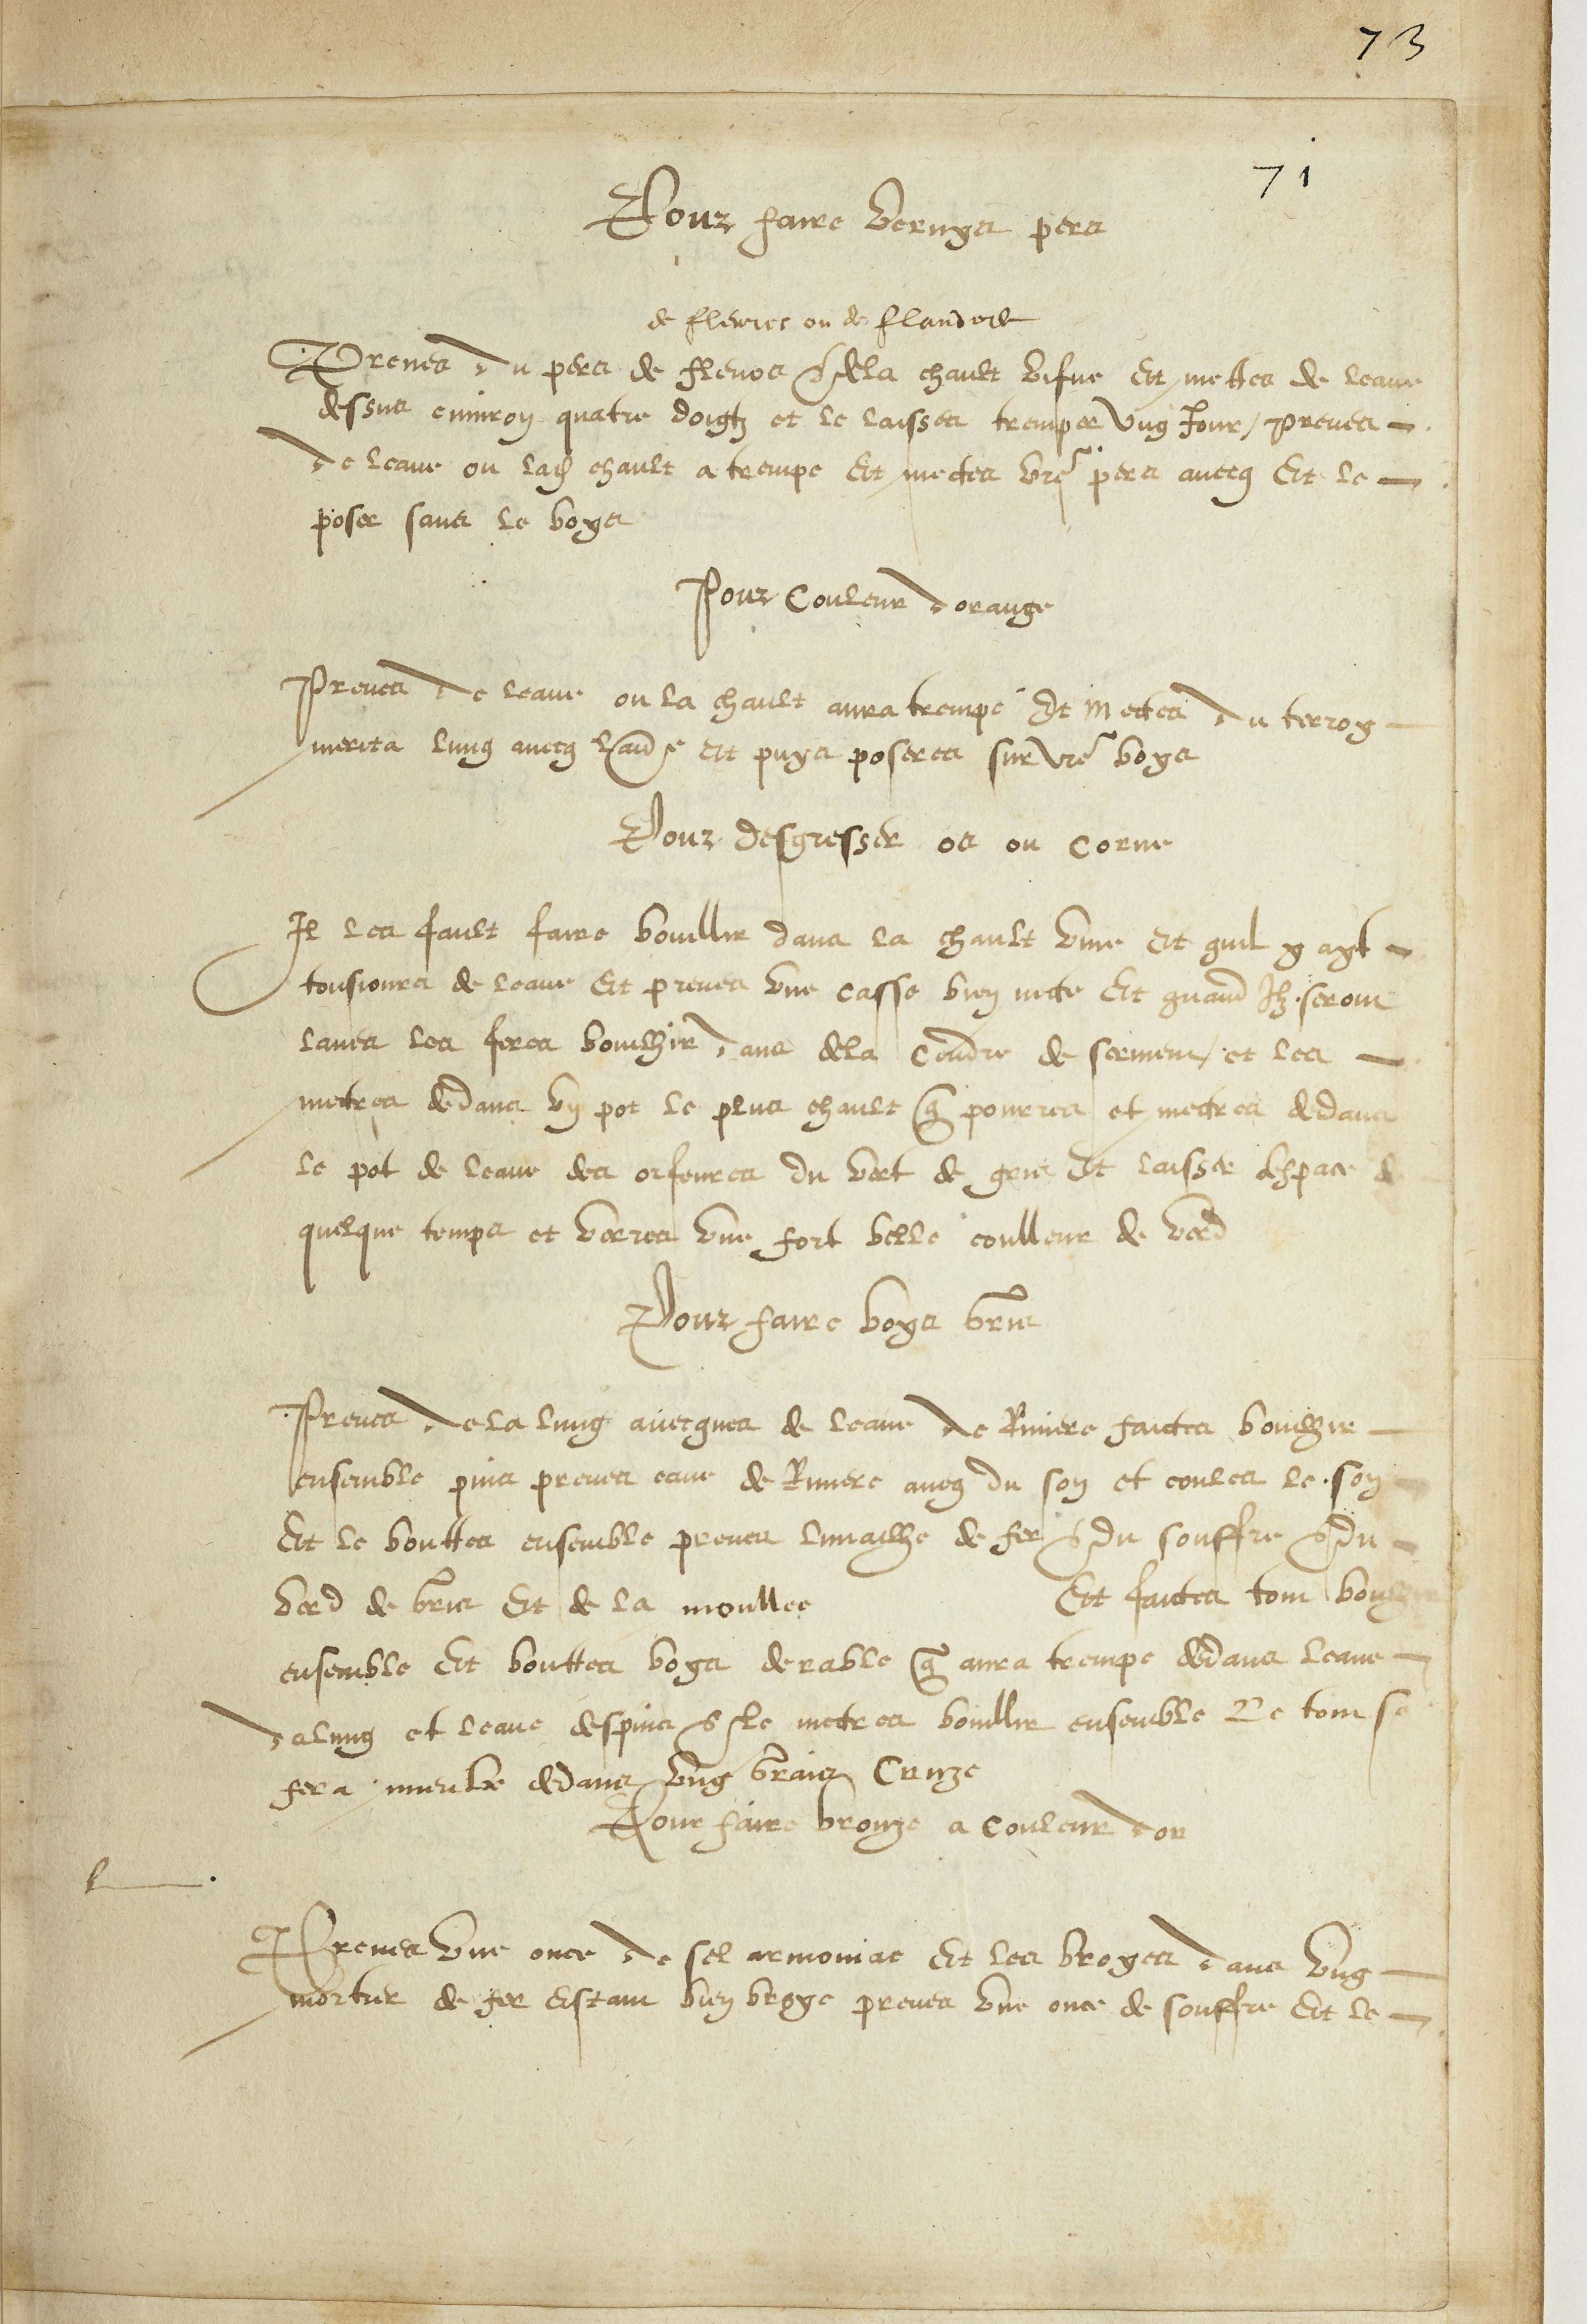 73
71
Pour faire vernys pers
de fleurec ou de flandere
Prenes du pers de flenos & dela chault vifve Et mettes de leaue
dessus environ quatre doigtz et le laisses tremper ung Jour / prenes
de leaue ou lad chault a trempe Et mectes vre pers avecq Et le
poser sans le boys
Pour Couleur dorange
Prenes de leaue ou la chault aura trempe Et mettes du terrog
merita lung avecq laude Et puys poseres sur vre boys
Pour desgresser os ou corne
Il les fault faire bouillir dans la chault vive Et quil y ayt
tousiours de leaue Et prenes une casse bien nette Et quand Ilz seront
laves les feres boulhir dans dela cendre de serment / et les
mettres dedans un pot le plus chault q pourres et mettres dedans
le pot de leaue des orfeures du vert de gris Et laisser despace de
quelque temps et verres une fort belle coulleur de verd
Pour faire boys gris
Prenes de la lung avecques de leaue de Riviere faictes boulhir
ensemble puis prenes eaue de Riviere aveq du son et coules le son
Et le bouttes ensemble prenes limailhe de fer & du souffre & du
verd de gris Et de la moullee Et faictes tout boulhir
ensemble Et bouttes boys derable q aura trempe dedans leaue
dalung et leaue despins & le mettres bouillir ensemble Et tout se
fera mieulx dedans ung
Pour faire bronze a couleur dor
Prenes une once de sel armoniac Et les broyes dans ung
mortier de fer Estant bien broye prenes une once de souffre Et le